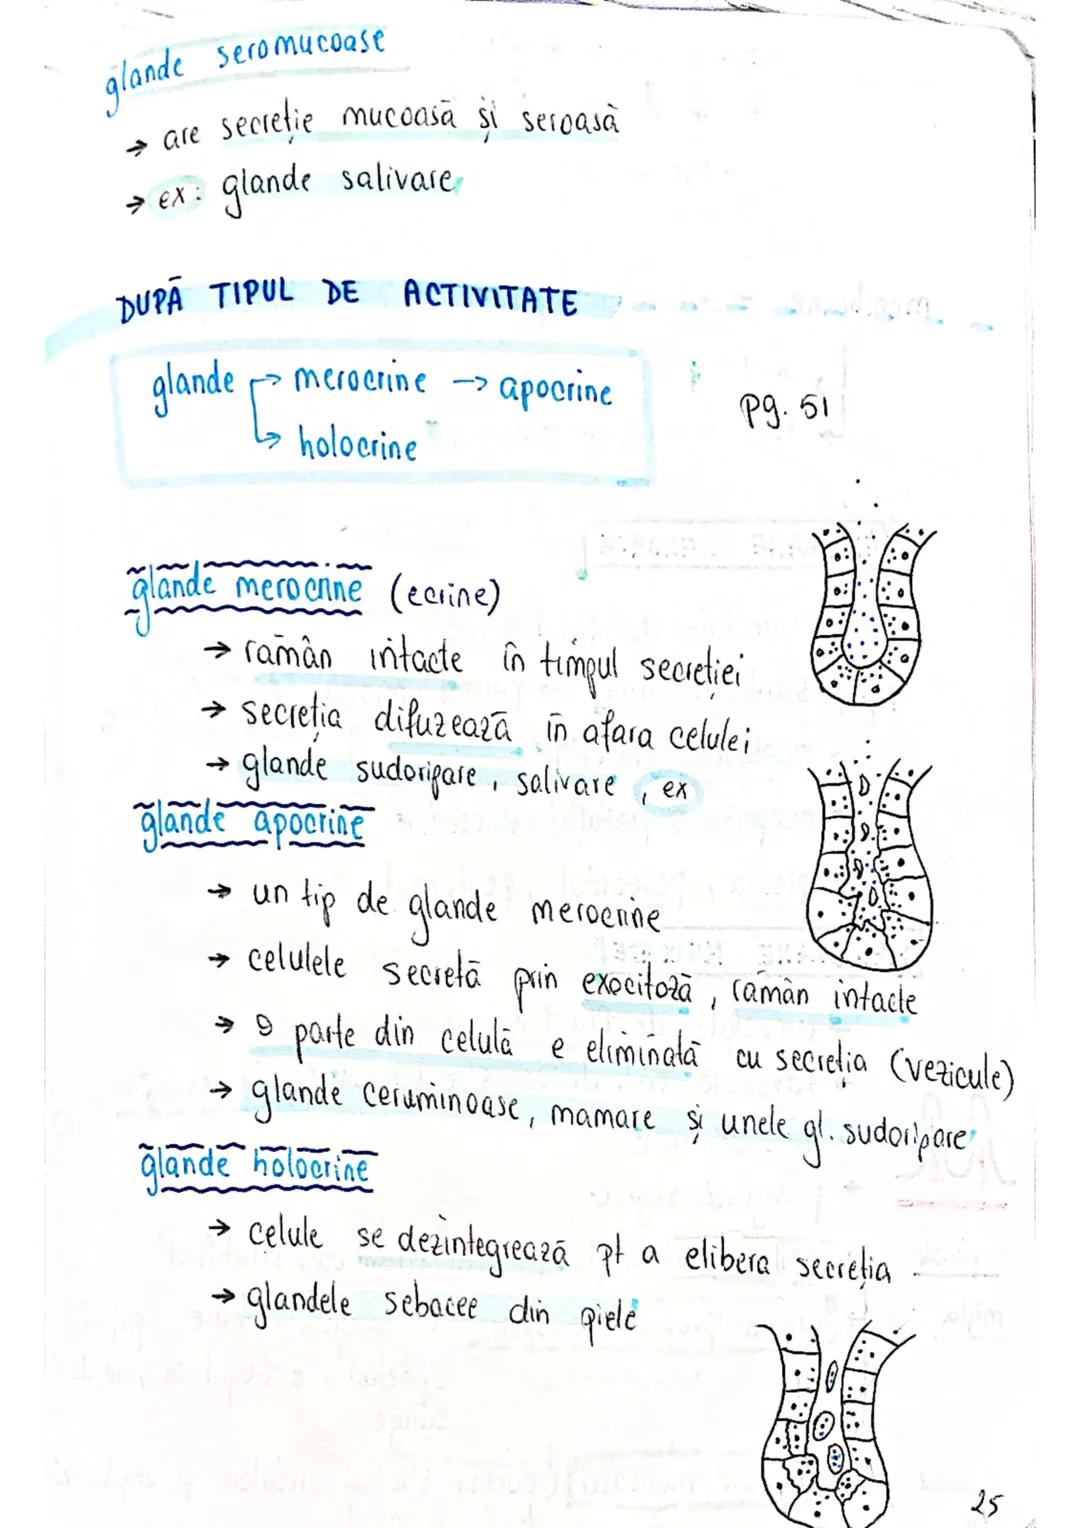 glande seromucoase
→ are secreție mucoasă și seroasă
→ ex: glande salivare
DUPĂ TIPUL DE ACTIVITATE
glande → merocrine → apocrine
↳ holocrine
pg. 51
glande merocrine (ecrine)
→ rămân intacte în timpul secreției
→ secreția difuzează în afara celulei
→ glande sudoripare, salivare, ex
glande apocrine
→ un tip de glande merocrine
→ celulele secretă prin exocitoză, rămân intacte
→ o parte din celulă e eliminată cu secreția (vezicule)
→ glande ceruminoase, mamare și unele gl. sudoripare
glande holocrine
→ celule se dezintegrează pt a elibera secreția
→ glandele sebacee din piele
25